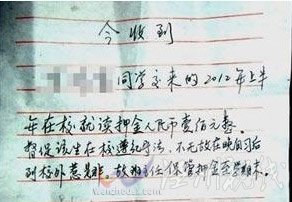 今收到
同学交来的2012年上半
年在校就读押金人民币壹佰元整。
督促该生在校遵纪守法,不无故在晚自习后
到校外惹是非。故班主任保管押金至学期末。